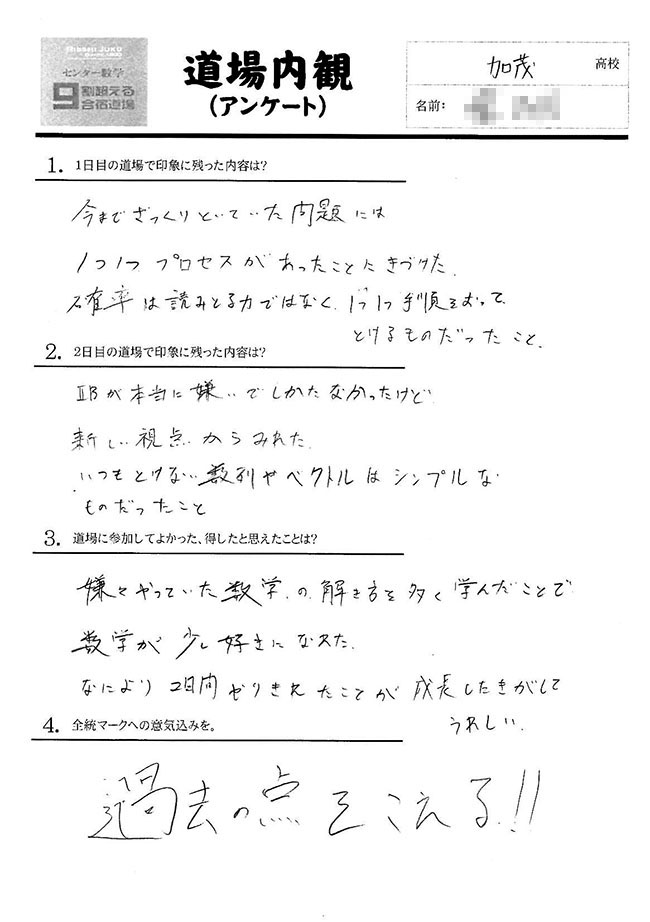 センター数学
9割超える
合宿道場
道場内観
(アンケート)
加茂 高校
名前:
1. 1日目の道場で印象に残った内容は?
今までざっくりといていた問題には
1つ1つ プロセスが あったことにきづけた.
確率は読みとる力ではなく、1つ1つ手順をおって
とけるものだったこと.
2. 2日目の道場で印象に残った内容は?
ⅡBが本当に嫌いでしかたなかったけど
新しい視点からみれた.
いつもとけない数列やベクトルはシンプルな
ものだったこと
3. 道場に参加してよかった、得したと思えたことは?
嫌々やっていた数学の解き方を多く学んだことで
数学が少し好きになれた.
なにより2日間やりきれたことが成長したきがして
うれしい.
4. 全統マークへの意気込みを。
過去の点をこえる!!